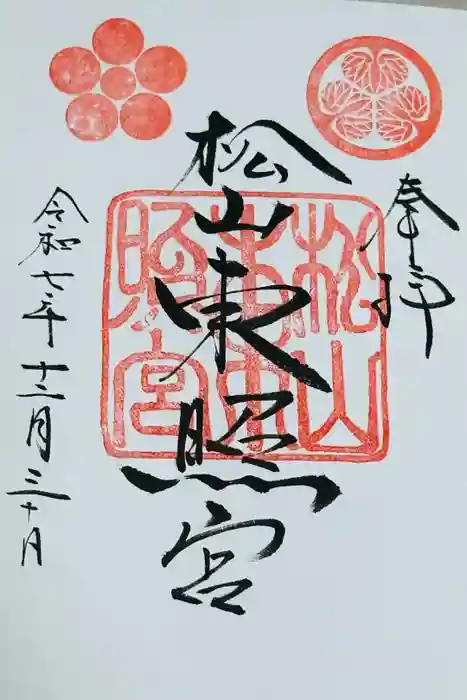 奉拝
松山東照宮
松山
東照宮
令和七年十二月三十日